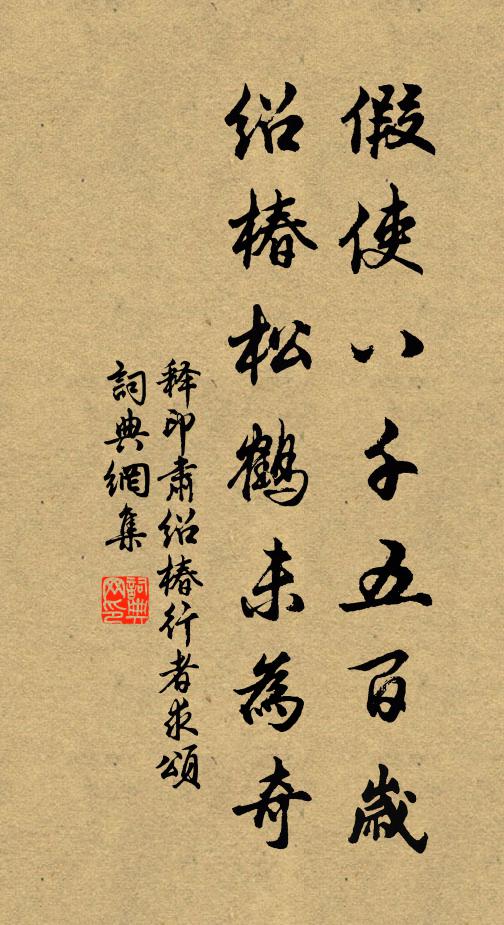 假使八千五百歲
紹椿松鶴未為奇
释印肅紹椿行者求頌
詞典網集
詞典网印